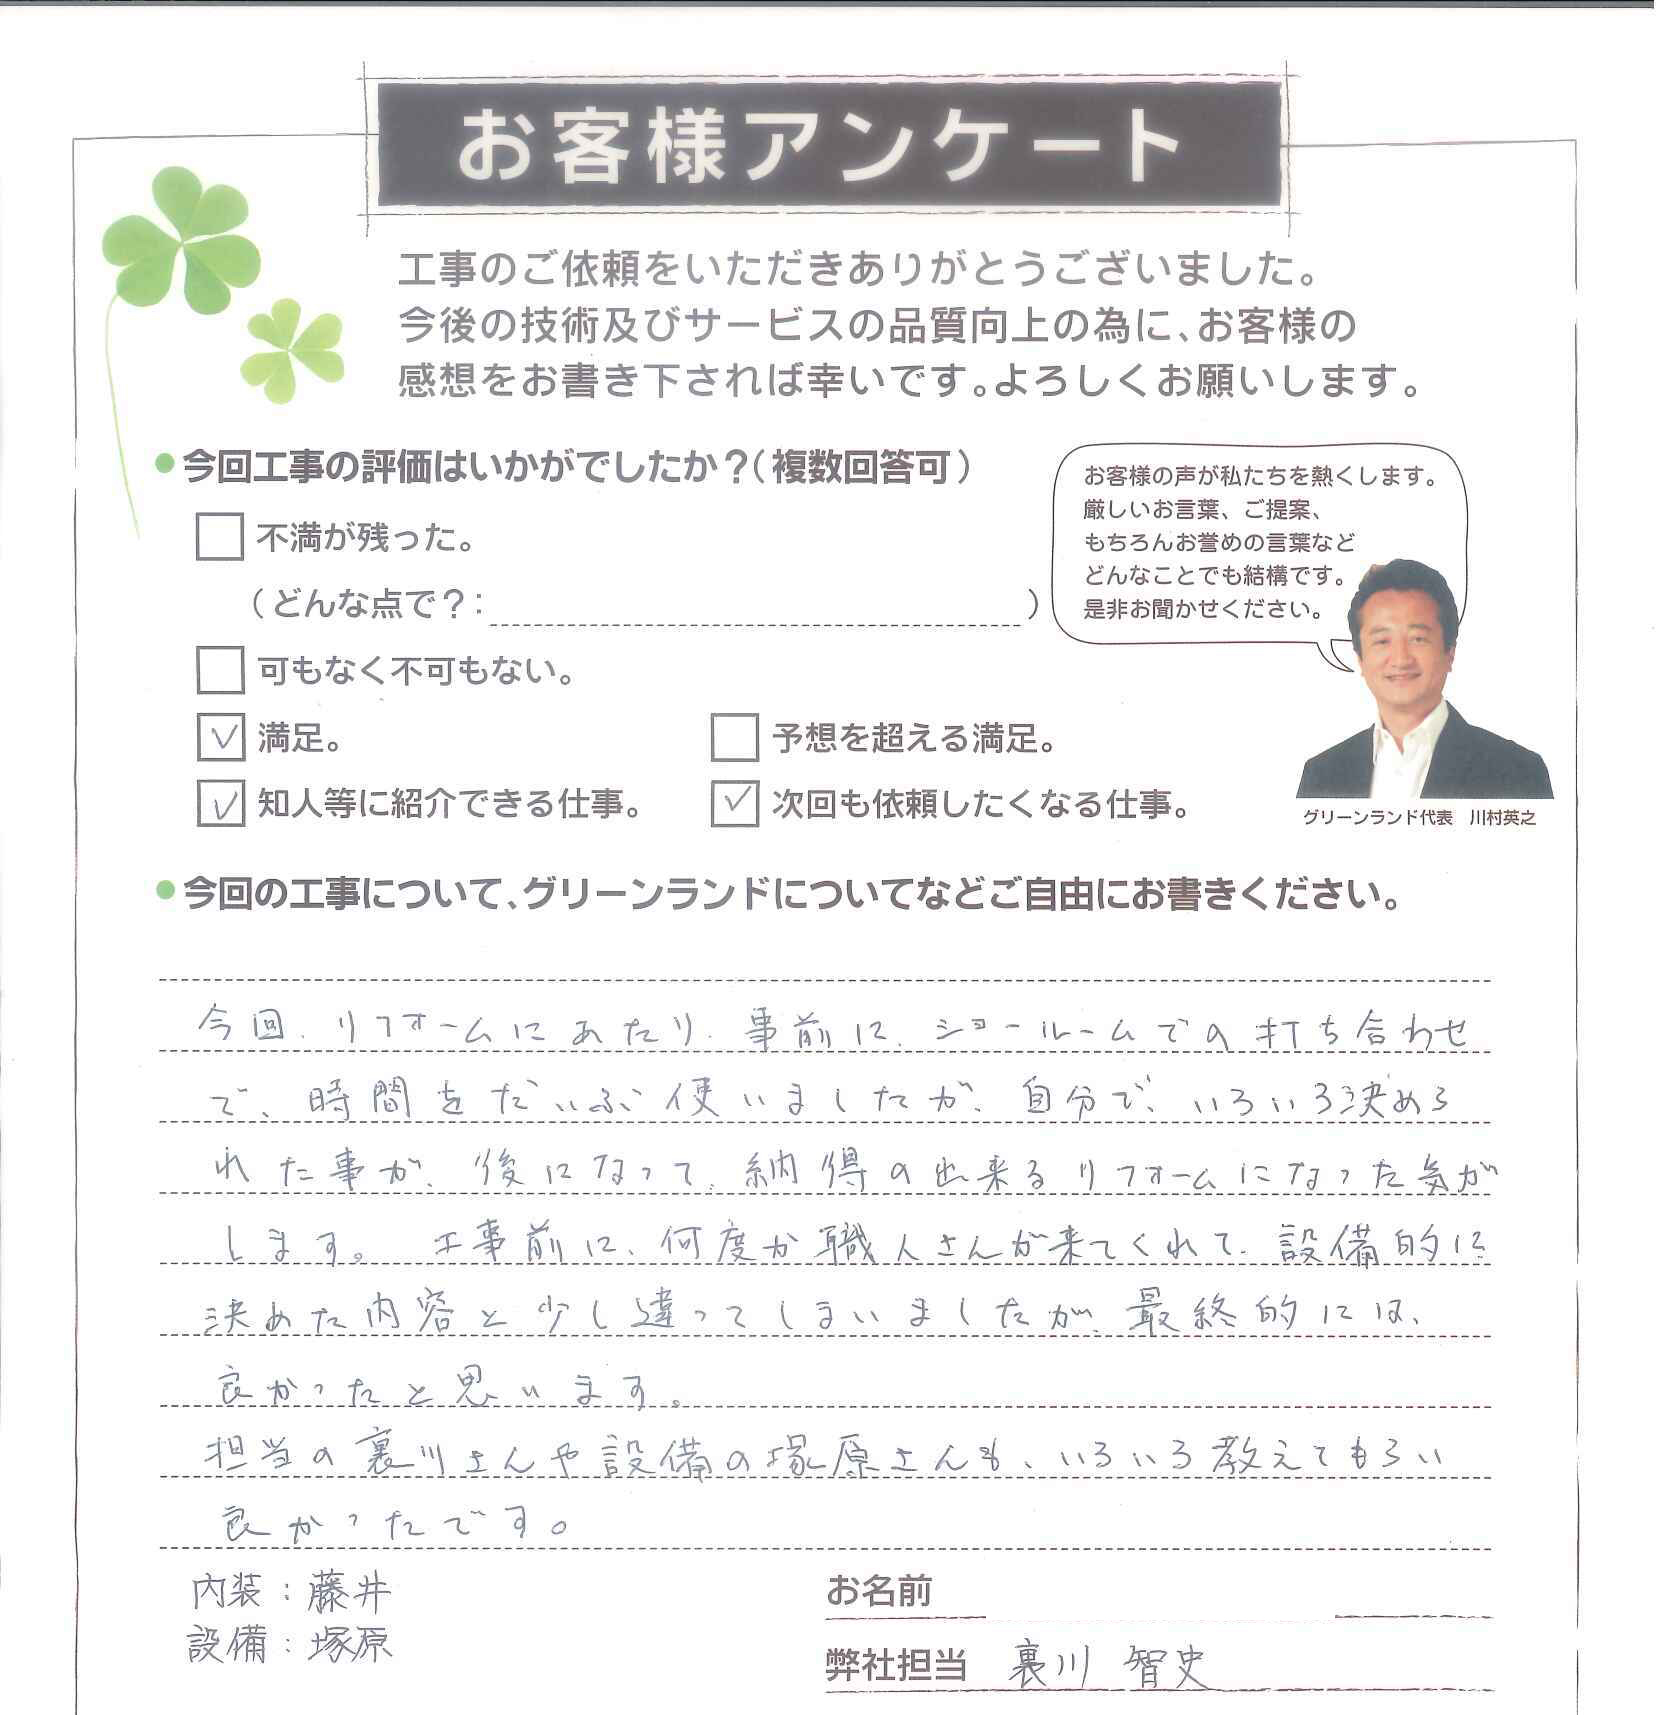 お客様アンケート
工事のご依頼をいただきありがとうございました。
今後の技術及びサービスの品質向上の為に、お客様の
感想をお書き下されば幸いです。よろしくお願いします。
今回工事の評価はいかがでしたか？（複数回答可）
不満が残った。
（どんな点で？：　）
可もなく不可もない。
満足。
予想を超える満足。
知人等に紹介できる仕事。
次回も依頼したくなる仕事。
お客様の声が私たちを熱くします。
厳しいお言葉、ご提案、
もちろんお誉めの言葉など
どんなことでも結構です。
是非お聞かせください。
グリーンランド代表　川村英之
今回の工事について、グリーンランドについてなどご自由にお書きください。
今回、リフォームにあたり、事前に、ショールームでの打ち合わせ
で、時間をだいぶ使いましたが、自分で、いろいろ決めら
れた事が、後になって、納得の出来るリフォームになった気が
します。　工事前に、何度か職人さんが来てくれて、設備的に
決めた内容と少し違ってしまいましたが、最終的には、
良かったと思います。
担当の裏川さんや設備の塚原さんも、いろいろ教えてもらい
良かったです。
内装：藤井
設備：塚原
お名前
弊社担当　裏川 智史